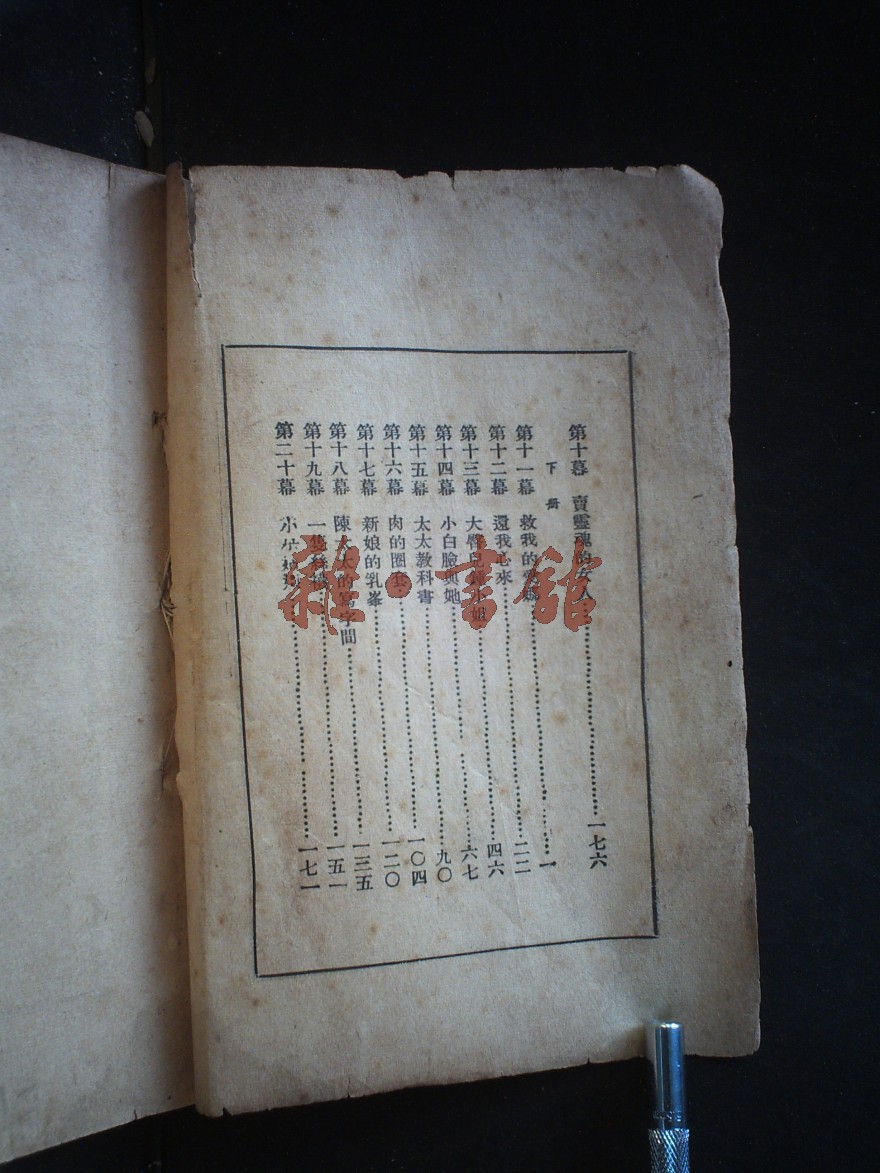 第十幕 賣靈魂的女人……一七六
下册
第十一幕 救我的……一
第十二幕 還我心來……二二
第十三幕 大臀兒小姐……四六
第十四幕 小白臉與她……六七
第十五幕 太太教科書……九〇
第十六幕 肉的圈套……一〇四
第十七幕 新娘的乳峯……一二〇
第十八幕 陳太太的寫字間……一三五
第十九幕 一隻絲襪……一五一
第二十幕 小……一七一
雜·書館